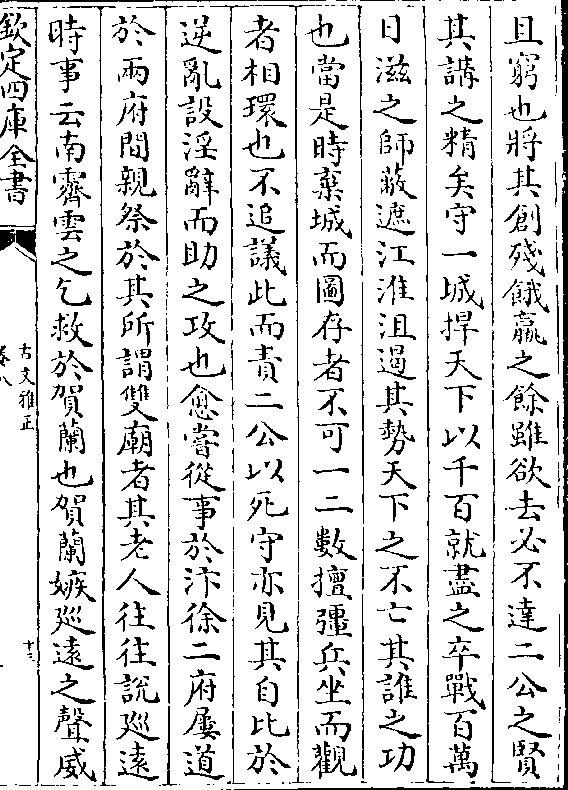 且窮也將其創殘餓羸之餘雖欲去必不達二公之賢
其講之精矣守一城捍天下以千百就盡之卒戰百萬
日滋之師蔽遮江淮沮遏其勢天下之不亡其誰之功
也當是時棄城而圖存者不可一二數擅彊兵坐而觀
者相環也不追議此而責二公以死守亦見其自比於
逆亂設淫辭而助之攻也愈嘗從事於汴徐二府屢道
於兩府間親祭於其所謂雙廟者其老人往往說巡遠
時事云南霽雲之乞救於賀蘭也賀蘭嫉巡遠之聲威
欽定四庫全書
古文雅正
卷八
十三